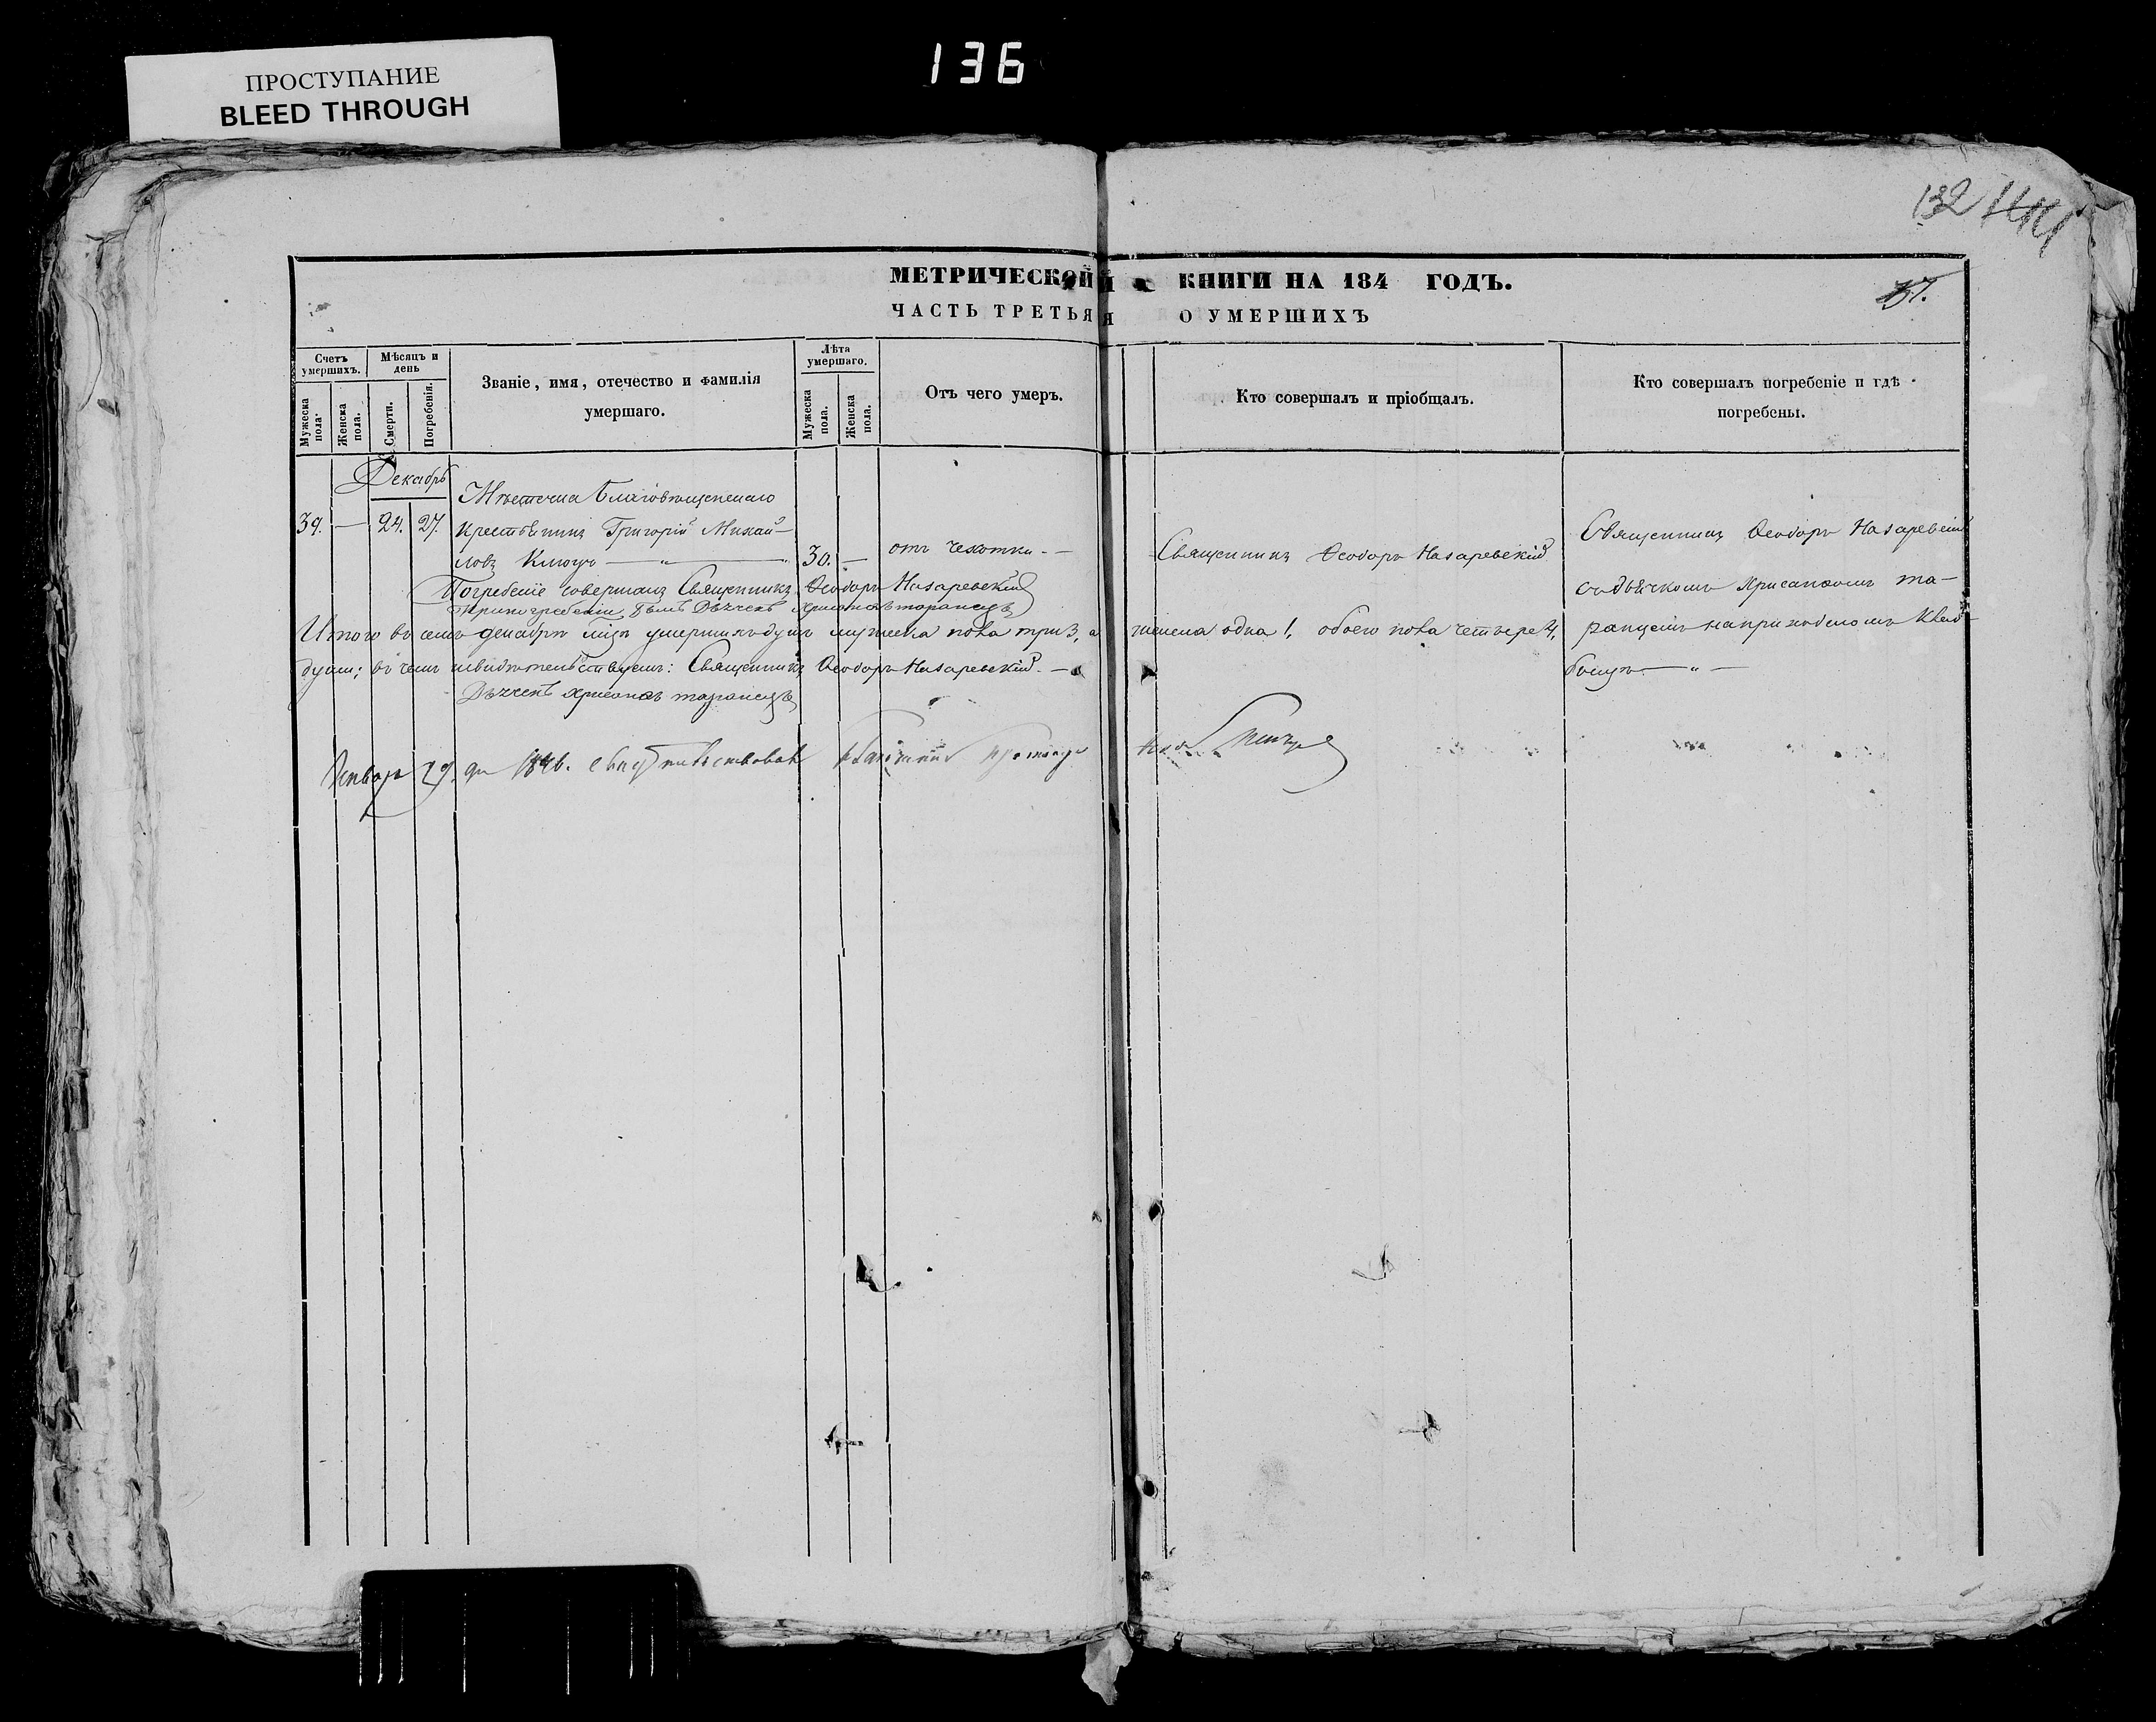 136
ПРОСТУПАНИЕ
BLEED THROUGH
132
37.
МЕТРИЧЕСКОЙ КНИГИ НА 184 ГОДЪ.
ЧАСТЬ ТРЕТЬЯ О УМЕРШИХЪ
Счетъ умершихъ.
Мужеска пола.
Женска пола.
Мѣсяцъ и день
Смерти.
Погребенія.
Званіе, имя, отечество и фамилія умершаго.
Лѣта умершаго.
Мужеска пола.
Женска пола.
Отъ чего умеръ.
Кто совершалъ и пріобщалъ.
Кто совершалъ погребеніе и гдѣ погребены.
Декабрь
39. — 24. 27.
Мѣстечка Благовѣщенскаго
крестьянинъ Григорій Михай-
ловъ Ключъ — „ —
30. —
отъ чехотки. —
Священникъ Ѳеодоръ Назаревскій
Священникъ Ѳеодоръ Назаревскій
съ дьячкомъ Хрисанѳомъ та-
ранцемъ на приходскомъ клад-
бищѣ — „ —
Погребеніе совершалъ Священникъ Ѳеодоръ Назаревскій
При погребеніи былъ Дьячекъ Хрисанѳъ таранецъ
Итого въ семъ декабрѣ мцѣ умершихъ душъ мужеска пола три 3, а женска одна 1, обоего пола четыре 4,
душъ; въ чемъ и свидѣтельствуемъ: Священникъ Ѳеодоръ Назаревскій. —
Дьячекъ Хрисанѳъ таранецъ
Январь 29. дня 1846. свидѣтельствовалъ